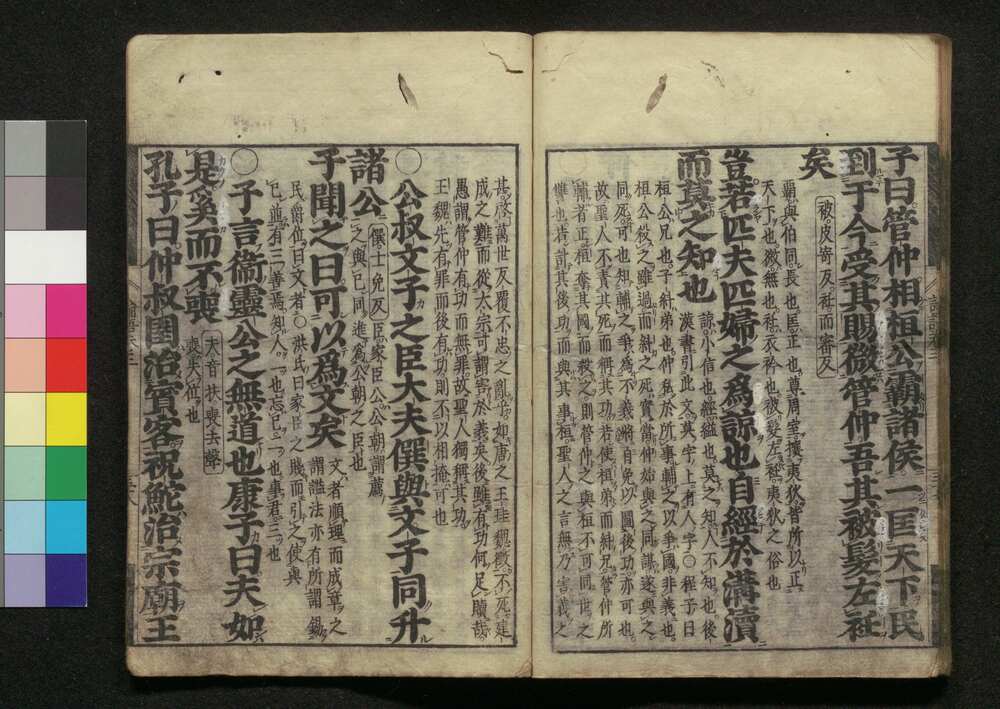 子曰管仲相桓公霸諸侯一匡天下民
到于今受其賜微管仲吾其被髮左衽
矣
被皮寄反衽而審反
霸與伯同長也匡正也尊周室攘夷狄皆所以正
天下也微無也衽衣衿也被髮左衽夷狄之俗也
豈若匹夫匹婦之爲諒也自經於溝瀆
而莫之知也
諒小信也經縊也莫之知人不知也後
漢書引此文莫字上有人字○程子曰
桓公兄也子糾弟也仲私於所事輔之以爭國非義也
桓公殺之雖過而糾之死實當仲始與之同謀遂與之
同死可也知輔之爭爲不義將自免以圖後功亦可也
故聖人不責其死而稱其功若使桓弟而糾兄管仲所
輔者正桓奪其國而殺之則管仲之與桓不可同世之
讎也若計其後功而與其事桓聖人之言無乃害義之
甚啓萬世反覆不忠之亂乎如唐之王珪魏徵不死建
成之難而從太宗可謂害於義矣後雖有功何足贖哉
愚謂管仲有功而無罪故聖人獨稱其功
王魏先有罪而後有功則不以相掩可也
○公叔文子之臣大夫僎與文子同升
諸公
僎士免反臣家臣公公朝謂薦
之與己同進爲公朝之臣也
子聞之曰可以爲文矣
文者順理而成章之
謂謚法亦有所謂錫
民爵位曰文者○洪氏曰家臣之賤而引之使與
己並有三善焉知人一也忘己二也事君三也
○子言衞靈公之無道也康子曰夫如
是奚而不喪
夫音扶喪去聲
喪失位也
孔子曰仲叔圉治賓客祝鮀治宗廟王